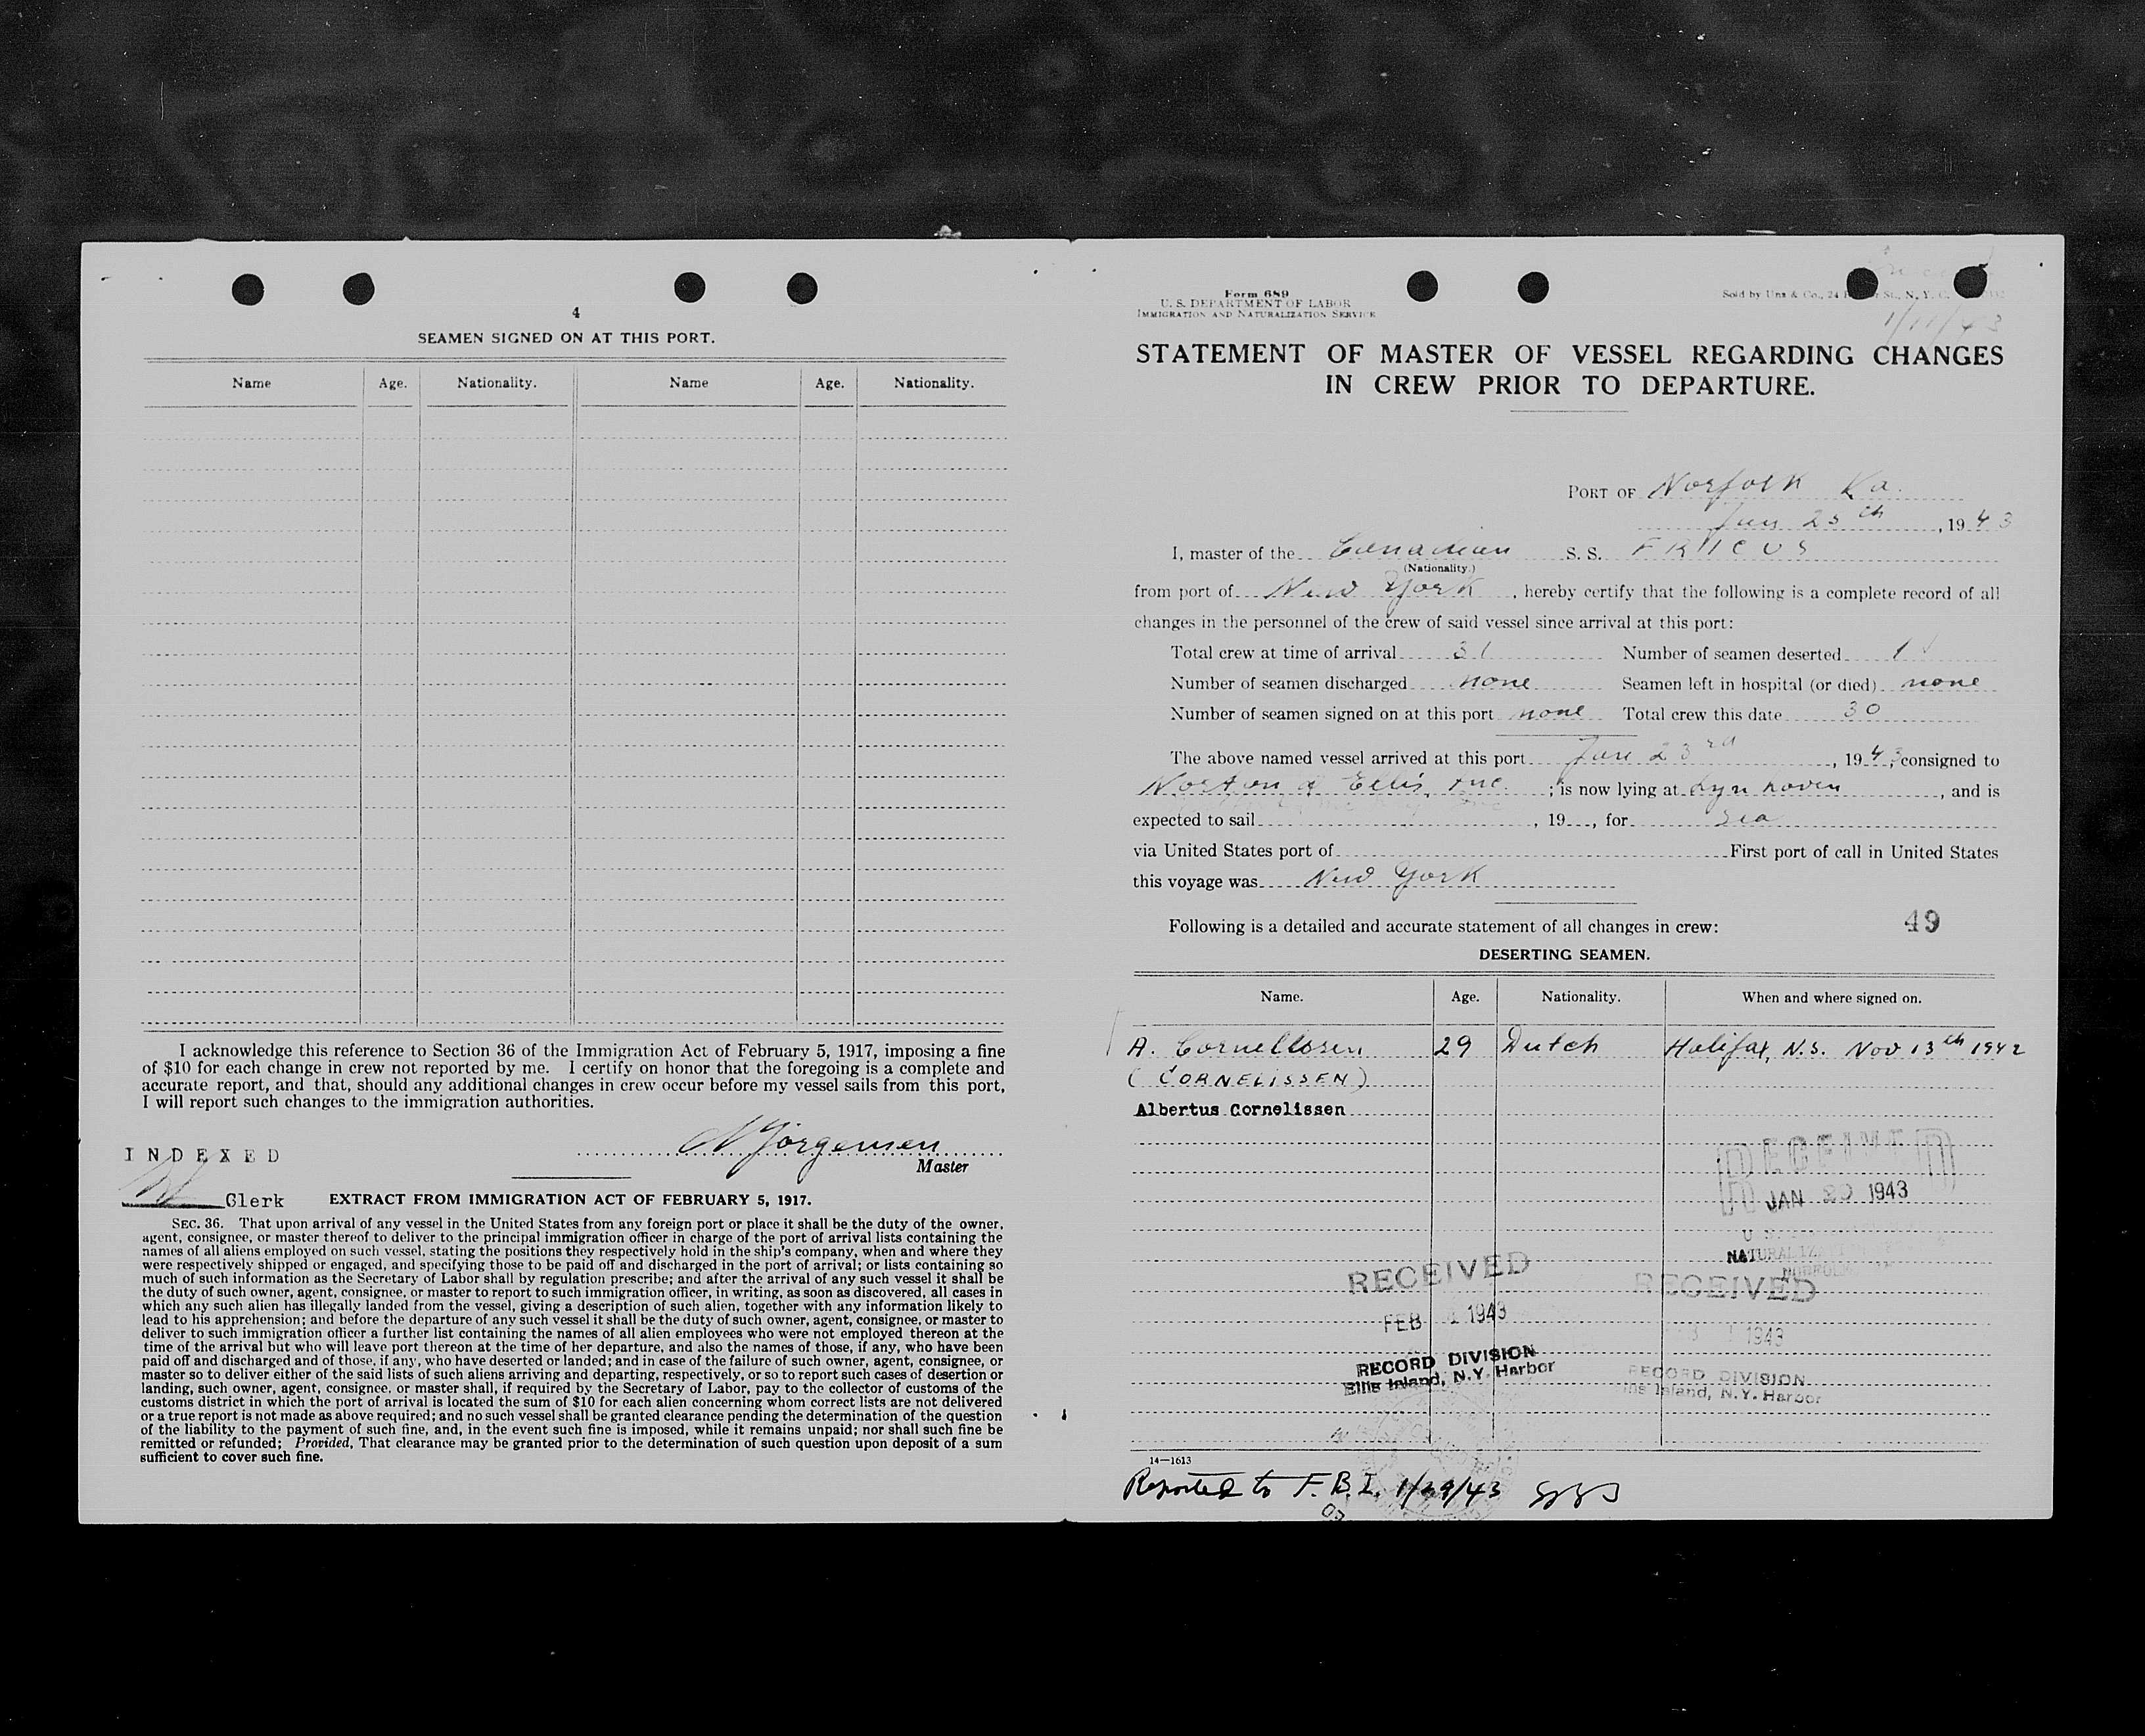 4
SEAMEN SIGNED ON AT THIS PORT.
Name Age. Nationality. Name Age. Nationality.
I acknowledge this reference to Section 36 of the Immigration Act of February 5, 1917, imposing a fine
of $10 for each change in crew not reported by me. I certify on honor that the foregoing is a complete and
accurate report, and that, should any additional changes in crew occur before my vessel sails from this port,
I will report such changes to the immigration authorities.
Jorgensen
Master
INDEXED
Clerk
EXTRACT FROM IMMIGRATION ACT OF FEBRUARY 5, 1917.
SEC. 36. That upon arrival of any vessel in the United States from any foreign port or place it shall be the duty of the owner,
agent, consignee, or master thereof to deliver to the principal immigration officer in charge of the port of arrival lists containing the
names of all aliens employed on such vessel, stating the positions they respectively hold in the ship's company, when and where they
were respectively shipped or engaged, and specifying those to be paid off and discharged in the port of arrival; or lists containing so
much of such information as the Secretary of Labor shall by regulation prescribe; and after the arrival of any such vessel it shall be
the duty of such owner, agent, consignee, or master to report to such immigration officer, in writing, as soon as discovered, all cases in
which any such alien has illegally landed from the vessel, giving a description of such alien, together with any information likely to
lead to his apprehension; and before the departure of any such vessel it shall be the duty of such owner, agent, consignee, or master to
deliver to such immigration officer a further list containing the names of all alien employees who were not employed thereon at the
time of the arrival but who will leave port thereon at the time of her departure, and also the names of those, if any, who have been
paid off and discharged and of those, if any, who have deserted or landed; and in case of the failure of such owner, agent, consignee, or
master so to deliver either of the said lists of such aliens arriving and departing, respectively, or so to report such cases of desertion or
landing, such owner, agent, consignee, or master shall, if required by the Secretary of Labor, pay to the collector of customs of the
customs district in which the port of arrival is located the sum of $10 for each alien concerning whom correct lists are not delivered
or a true report is not made as above required; and no such vessel shall be granted clearance pending the determination of the question
of the liability to the payment of such fine, and, in the event such fine is imposed, while it remains unpaid; nor shall such fine be
remitted or refunded; Provided, That clearance may be granted prior to the determination of such question upon deposit of a sum
sufficient to cover such fine.
Form 689
U. S. DEPARTMENT OF LABOR
IMMIGRATION AND NATURALIZATION SERVICE
Sold by Unz & Co., 24 St., N. Y. C.
STATEMENT OF MASTER OF VESSEL REGARDING CHANGES
IN CREW PRIOR TO DEPARTURE.
PORT OF Norfolk Va.
25th, 1943
I, master of the Canadian S. S.
(Nationality.)
from port of New York, hereby certify that the following is a complete record of all
changes in the personnel of the crew of said vessel since arrival at this port:
Total crew at time of arrival 31 Number of seamen deserted 1
Number of seamen discharged none Seamen left in hospital (or died) none
Number of seamen signed on at this port none Total crew this date 30
The above named vessel arrived at this port 23rd, 1943, consigned to
Norton & Ellis, Inc. ; is now lying at Lynhaven, and is
expected to sail , 19 , for sea
via United States port of First port of call in United States
this voyage was New York
Following is a detailed and accurate statement of all changes in crew:
49
DESERTING SEAMEN.
Name. Age. Nationality. When and where signed on.
A. Cornellssen 29 Dutch Halifax, N.S. Nov 13th 1942
(CORNELISSEN)
Albertus Cornelissen
RECEIVED
JAN 1943
NATURALIZATION
RECEIVED
FEB 1 1943
RECORD DIVISION
Ellis Island, N.Y. Harbor
RECEIVED
1 1943
RECORD DIVISION
Island, N.Y. Harbor
14—1613
Reported to F.B.I. 1/29/43